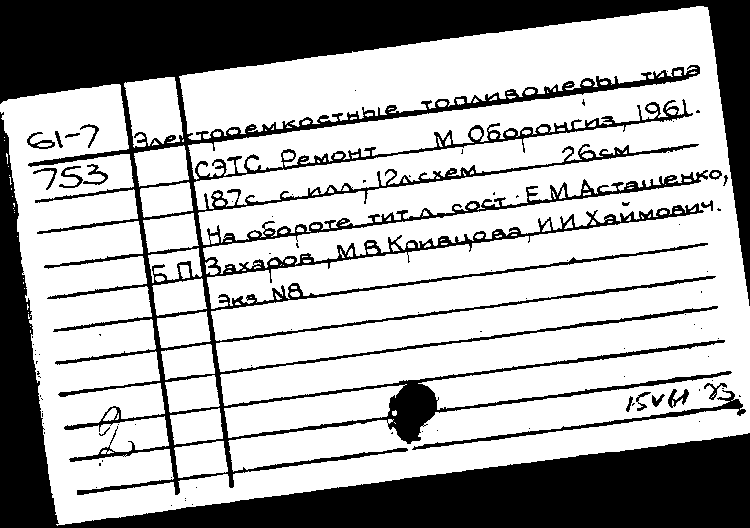 61-7 Электроемкостные топливомеры типа
753 СЭТС. Ремонт М, Оборонгиз, 1961.
187с. с илл; 12л.схем. 26см
На обороте тит.л. сост: Е.М.Асташенко,
Б.П.Захаров, М.В.Кривцова, И.И.Хаймович.
Экз N8.
15 VI 61
2